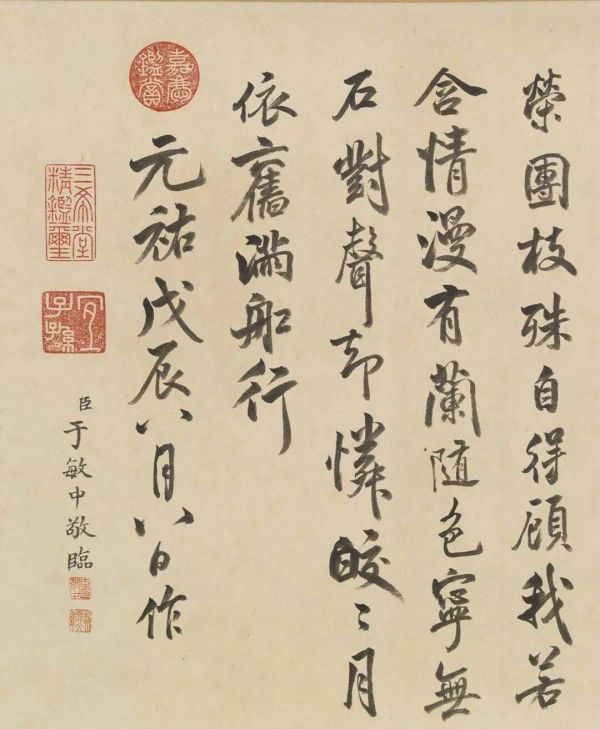 榮團枝殊自得顧我若
含情漫有蘭隨色寧無
石對聲却憐皎〻月
依舊滿船行
嘉慶鑑賞
元祐戊辰八月八日作
三希堂精鑑璽
宜子孫
臣于敏中敬臨